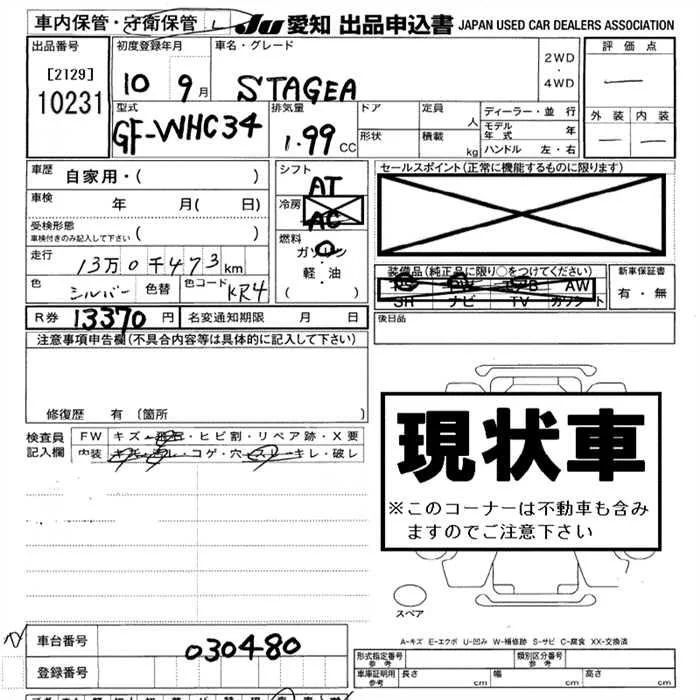 車内保管・守衛保管 し JU 愛知 出品申込書 JAPAN USED CAR DEALERS ASSOCIATION
出品番号 初度登録年月 車名・グレード 2WD ・ 4WD 評価点
[2129]
10231 10 9月 STAGEA —
型式 排気量 ドア 定員 人 ディーラー・並行 外装 内装
GF-WHC34 1.99 CC 形状 積載 kg モデル年式 年 — —
ハンドル 左・右
車歴 自家用・( ) シフト AT セールスポイント(正常に機能するものに限ります)
車検 年 月( 日) 冷房 AC
受検形態 ( )
車検付きのみ記入して下さい
燃料 ガソリン
軽・油
( )
走行 13万0千473km
色 シルバー 色替 色コード KR4
装備品(純正品に限り○をつけてください) 新車保証書
PS PW エアB AW 有・無
SR ナビ TV カワシート
R券 13370 円 名変通知期限 月 日 後日品
注意事項申告欄(不具合内容等は具体的に記入して下さい)
修復歴 有 〔箇所 〕
現状車
※このコーナーは不動車も含みますのでご注意下さい
検査員記入欄 FW キズ・飛石・ヒビ割・リペア跡・X要
内装 キズ・汚レ・コゲ・穴・スリキレ・破レ
スペア
A-キズ E-エクボ U-凹み W-補修跡 S-サビ C-腐食 XX-交換済
車台番号 030480
登録番号
形式指定番号 参考 類別区分番号 参考
車庫証明用 参考 長さ cm 幅 cm 高さ cm